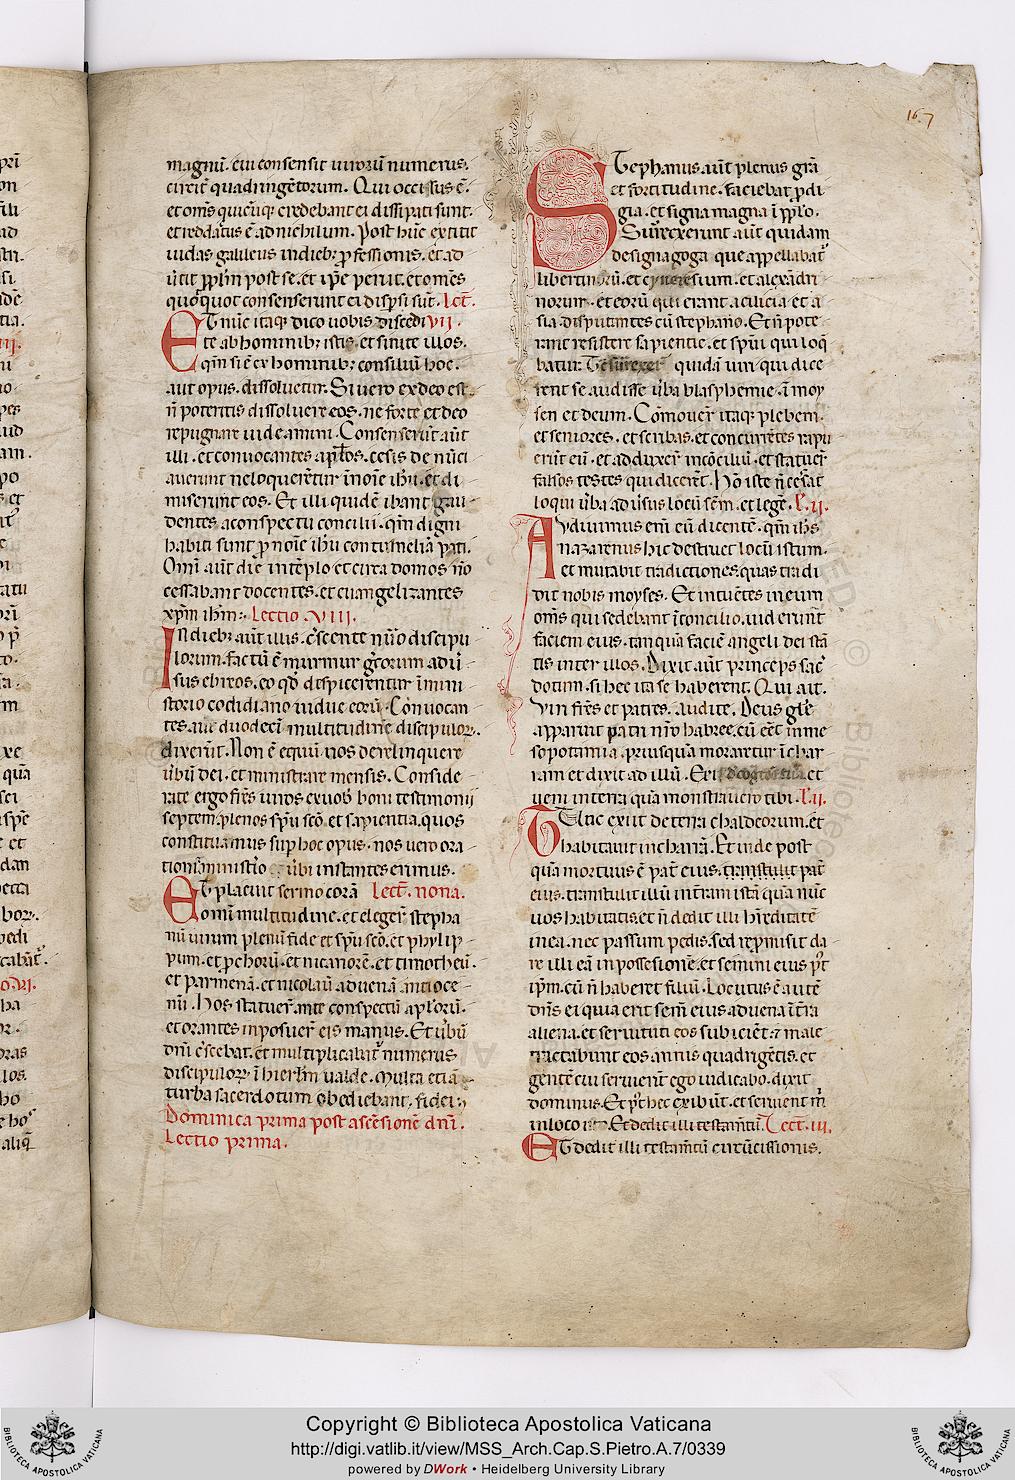 167
magnū. cui consensit uirorū numerus.
circit̄ quadringētorum. Qui occissus ē.
et om̄s quicūq; credebant ei dissipati sunt.
et reddatus ē ad nichilum. Post hūc extitit
iudas galileus in dieb; professionis. et ad
u̅tit pp̄lm post se. et ip̄e periit. et omēs
quodquot consenserunt ei disp̄si sūt. Lect̄.
ET nūc itaq; dico uobis discedi VII.
te ab hominib; istis. et sinite illos.
qm̄ si ē ex hominib; consiliū hoc.
aut opus. dissoluetur. Si uero ex deo est.
n̄ poteritis dissoluere eos. ne forte et deo
repugnare uideamini. Consenserūt aūt
illi. et conuocantes ap̄los. cesis denūci
auerunt ne loquerētur ī noīe ihū. et di
miserunt eos. Et illi quidē ibant gau
dentes a conspectu concilii. qm̄ digni
habiti sunt pro noīe ihū contumeliā pati.
Om̄i aūt die in tēplo et circa domos nō
cessabant docentes. et euangelizantes
xp̄m ihm̄. Lectio VIII.
IN dieb; aūt illis. c̄scente nūo discipu
lorum. factū ē murmur grēcorum adū
sus ebreos. eo qd̄ dispicerentur ī mini
storio codidiano uidue eorū. Cōnuocan
tes aūt duodecī multitudine discipulor̄.
dixerūt. Non ē equū nos derelinquere
ūbū dei. et ministrare mensis. Conside
rate ergo frēs uiros ex uob̄ boni testimonii
septem. plenos spū sc̄o. et sapientia. quos
constituamus sup hoc opus. nos uero ora
tioni. ministrīo ūbi instantes erimus.
ET placuit sermo corā Lect̄. nona.
omī multitudine. et eleger̄ stepha
nū uirum plenū fide et spū sc̄o. et phylip
pum. et prochorū. et nicanorē. et timotheū.
et parmenā. et nicolaū aduenā antioce
nū. Hos statuer̄ ante conspectū ap̄lorū.
et orantes inposuer̄ eis manus. Et ūbū
dn̄i c̄scebat. et multiplicabat̄ numerus
discipulor̄. ī hierl̄m ualde. Multa etiā
turba sacerdotum obediebant. fidei.
Dominica prima post ascēsionē dn̄i.
Lectio prima.
STephanus. aūt plenus grā
et fortitudine. faciebat prodi
gia. et signa magna ī pp̄lo.
Surrexerunt aūt quidam
de signagoga que appellabat̄
libertinorū. et cyrenesium. et alexādri
norum. et eorū qui erant a cilicia et a
sia. disputantes cū stephano. Et n̄ pote
rant resistere sapientie. et spūi qui loq̄
batur. quidā uiri qui dice
rent se audisse ūba blasphemie. ī moy
sen et deum. Cōmouer̄ itaq; plebem.
et seniores. et scribas. et concurrētes rapu
erūt eū. et adduxer̄ in cōciliū. et statuer̄
falsos testes qui dicerēt. Hō iste n̄ cēsat
loqui ūba aduīsus locū sc̄m. et legē. L̄. ii.
AUdiuimus enī eū dicentē. qm̄ ihs̄
nazarenus hic destruet locū istum.
et mutabit tradictiones. quas tradi
dit nobis moyses. Et intuētes in eum
om̄s qui sedebant ī concilio. uiderunt
faciem eius. tanquā faciē angeli dei stā
tis inter illos. Dixit aūt princeps sac̄
dotum. si hec ita se haberent. Qui ait.
Viri frēs et patres. audite. Deus glē
apparuit patri nrō habree. cū eēt in me
sopotamia. priusquā moraretur ī char
ram et dixit ad illū. Exi et
ueni in terrā quā monstrauero tibi. L̄. iii.
TUnc exiit de terra chaldeorum. et
habitauit in charrā. Et inde post
quā mortuus ē pat̄ eius. transtulit pat̄
eius. transtulit illū in t̄ram istā quā nūc
uos habitatis. et n̄ dedit illi h̄reditatē
in ea. nec passum pedis. sed repromisit da
re illi eā in possesionē. et semini eius p̄t
ip̄m. cū n̄ haberet filiū. Locutus ē autē
dn̄s ei quia erit sem̄ eius aduena ī t̄ra
aliena. et seruituti eos subicient. ⁊ male
tractabunt eos annis quadrigētis. et
gentē cui seruient ego iudicabo. dixit
dominus. Et p̄t hec exibūt. et seruient m̄
in loco isto. Et dedit illi testam̄tū. Lect̄. iii.
ET dedit illi testam̄tū circūcissionis.
Copyright © Biblioteca Apostolica Vaticana
http://digi.vatlib.it/view/MSS_Arch.Cap.S.Pietro.A.7/0339
powered by DWork • Heidelberg University Library
BIBLIOTECA APOSTOLICA VATICANA
BIBLIOTECA APOSTOLICA VATICANA